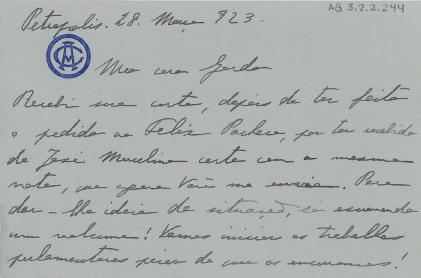 AG 3.2.2.244
Petropolis. 28. Março 923.
Meu caro Gerdo
Recebi sua carta, depois de ter feito
o pedido ao Felix Pacheco, por ter recebido
de José Marcelino carta com a mesma
nota, que agora Você me enviou. Para
dar-lhe ideia da situação, só escrevendo
um volume! Vamos iniciar os trabalhos
parlamentares peior do que os encerramos!